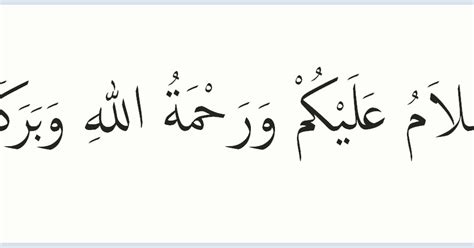 لاَمُ عَلَيْكُمْ وَرَحْمَةُ اللهِ وَبَرَكَ